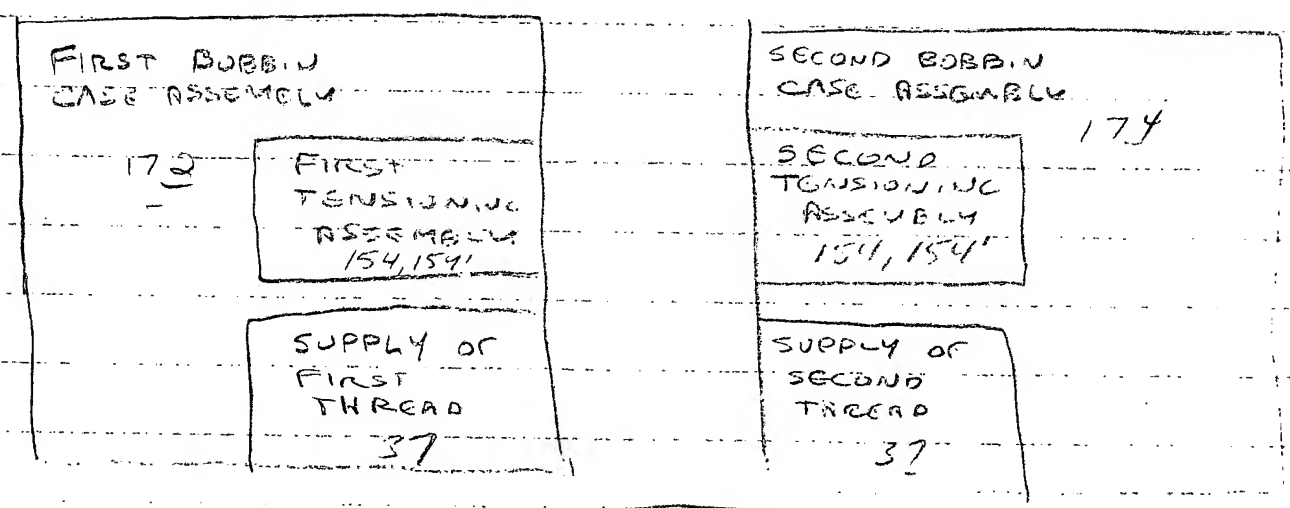 FIRST BOBBIN
CASE ASSEMBLY
172
FIRST
TENSIONING
ASSEMBLY
154, 154'
SUPPLY OF
FIRST
THREAD
37
SECOND BOBBIN
CASE ASSEMBLY
174
SECOND
TENSIONING
ASSEMBLY
154, 154'
SUPPLY OF
SECOND
THREAD
37